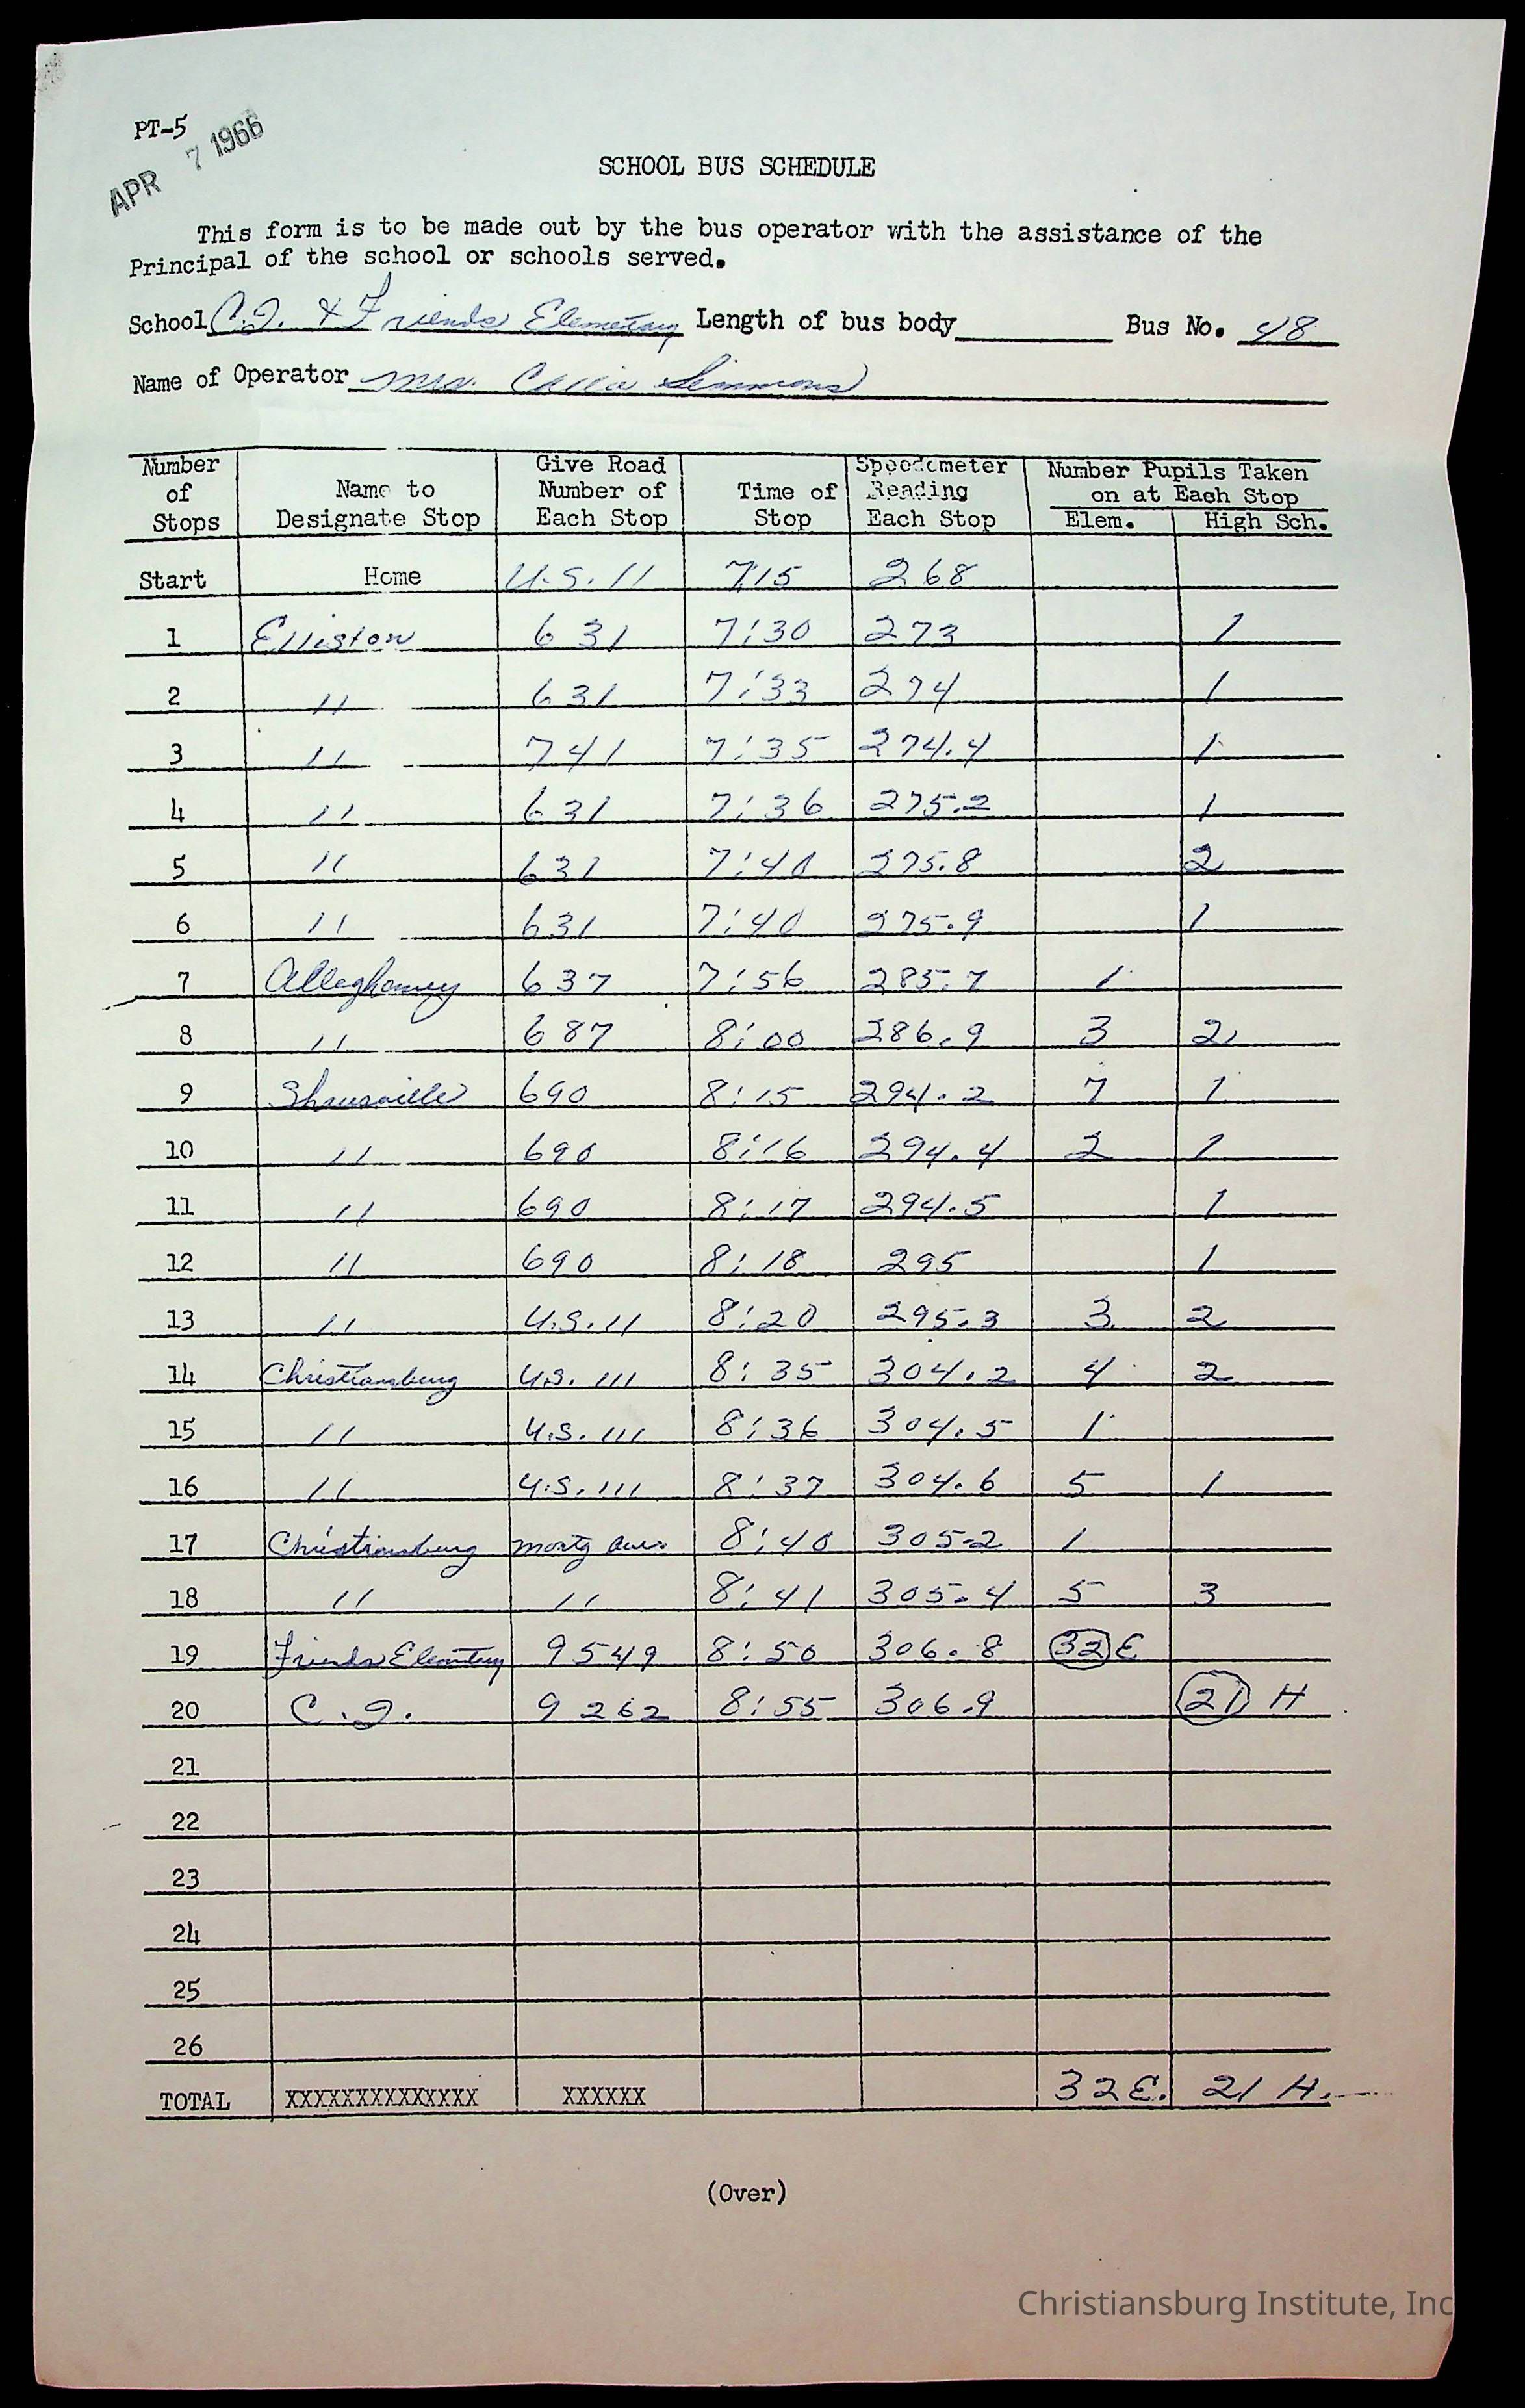 PT-5
APR 7 1966
SCHOOL BUS SCHEDULE
This form is to be made out by the bus operator with the assistance of the
Principal of the school or schools served.
School C.I. & Friends Elementary Length of bus body Bus No. 48
Name of Operator Mrs. Simmons
Number of Stops Name to Designate Stop Give Road Number of Each Stop Time of Stop Speedometer Reading Each Stop Number Pupils Taken on at Each Stop Elem. High Sch.
Start Home U.S. 11 7:15 268
1 Elliston 631 7:30 273 1
2 " 631 7:33 274 1
3 " 741 7:35 274.4 1
4 " 631 7:36 275.2 1
5 " 631 7:40 275.8 2
6 " 631 7:40 275.9 1
7 Alleghaney 637 7:56 285.7 1
8 " 687 8:00 286.9 3 2
9 690 8:15 294.2 7 1
10 " 690 8:16 294.4 2 1
11 " 690 8:17 294.5 1
12 " 690 8:18 295 1
13 " U.S. 11 8:20 295.3 3 2
14 Christiansburg U.S. 111 8:35 304.2 4 2
15 " U.S. 111 8:36 304.5 1
16 " U.S. 111 8:37 304.6 5 1
17 Christiansburg 8:40 305.2 1
18 " " 8:41 305.4 5 3
19 Friends Elementary 9549 8:50 306.8 32 E
20 C.I. 9262 8:55 306.9 21 H
21
22
23
24
25
26
TOTAL XXXXXXXXXXXXXX XXXXXX 32 E. 21 H.
(Over)
Christiansburg Institute, Inc